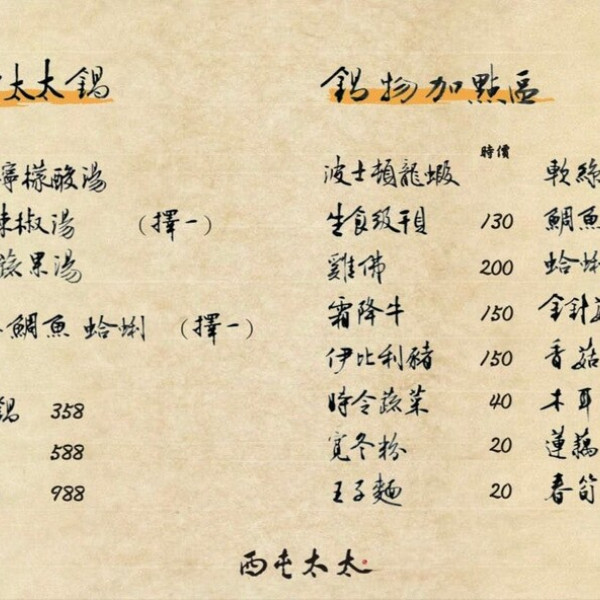 太太鍋
檸檬酸湯
辣椒湯 （擇一）
蔬果湯
鯛魚 蛤蜊 （擇一）
鍋 358
588
988
鍋物加點區
時價
波士頓龍蝦
生食級干貝 130
雞佛 200
霜降牛 150
伊比利豬 150
時令蔬菜 40
寬冬粉 20
王子麵 20
軟絲
鯛魚
蛤蜊
金針
香菇
木耳
蓮藕
春筍
西屯太太